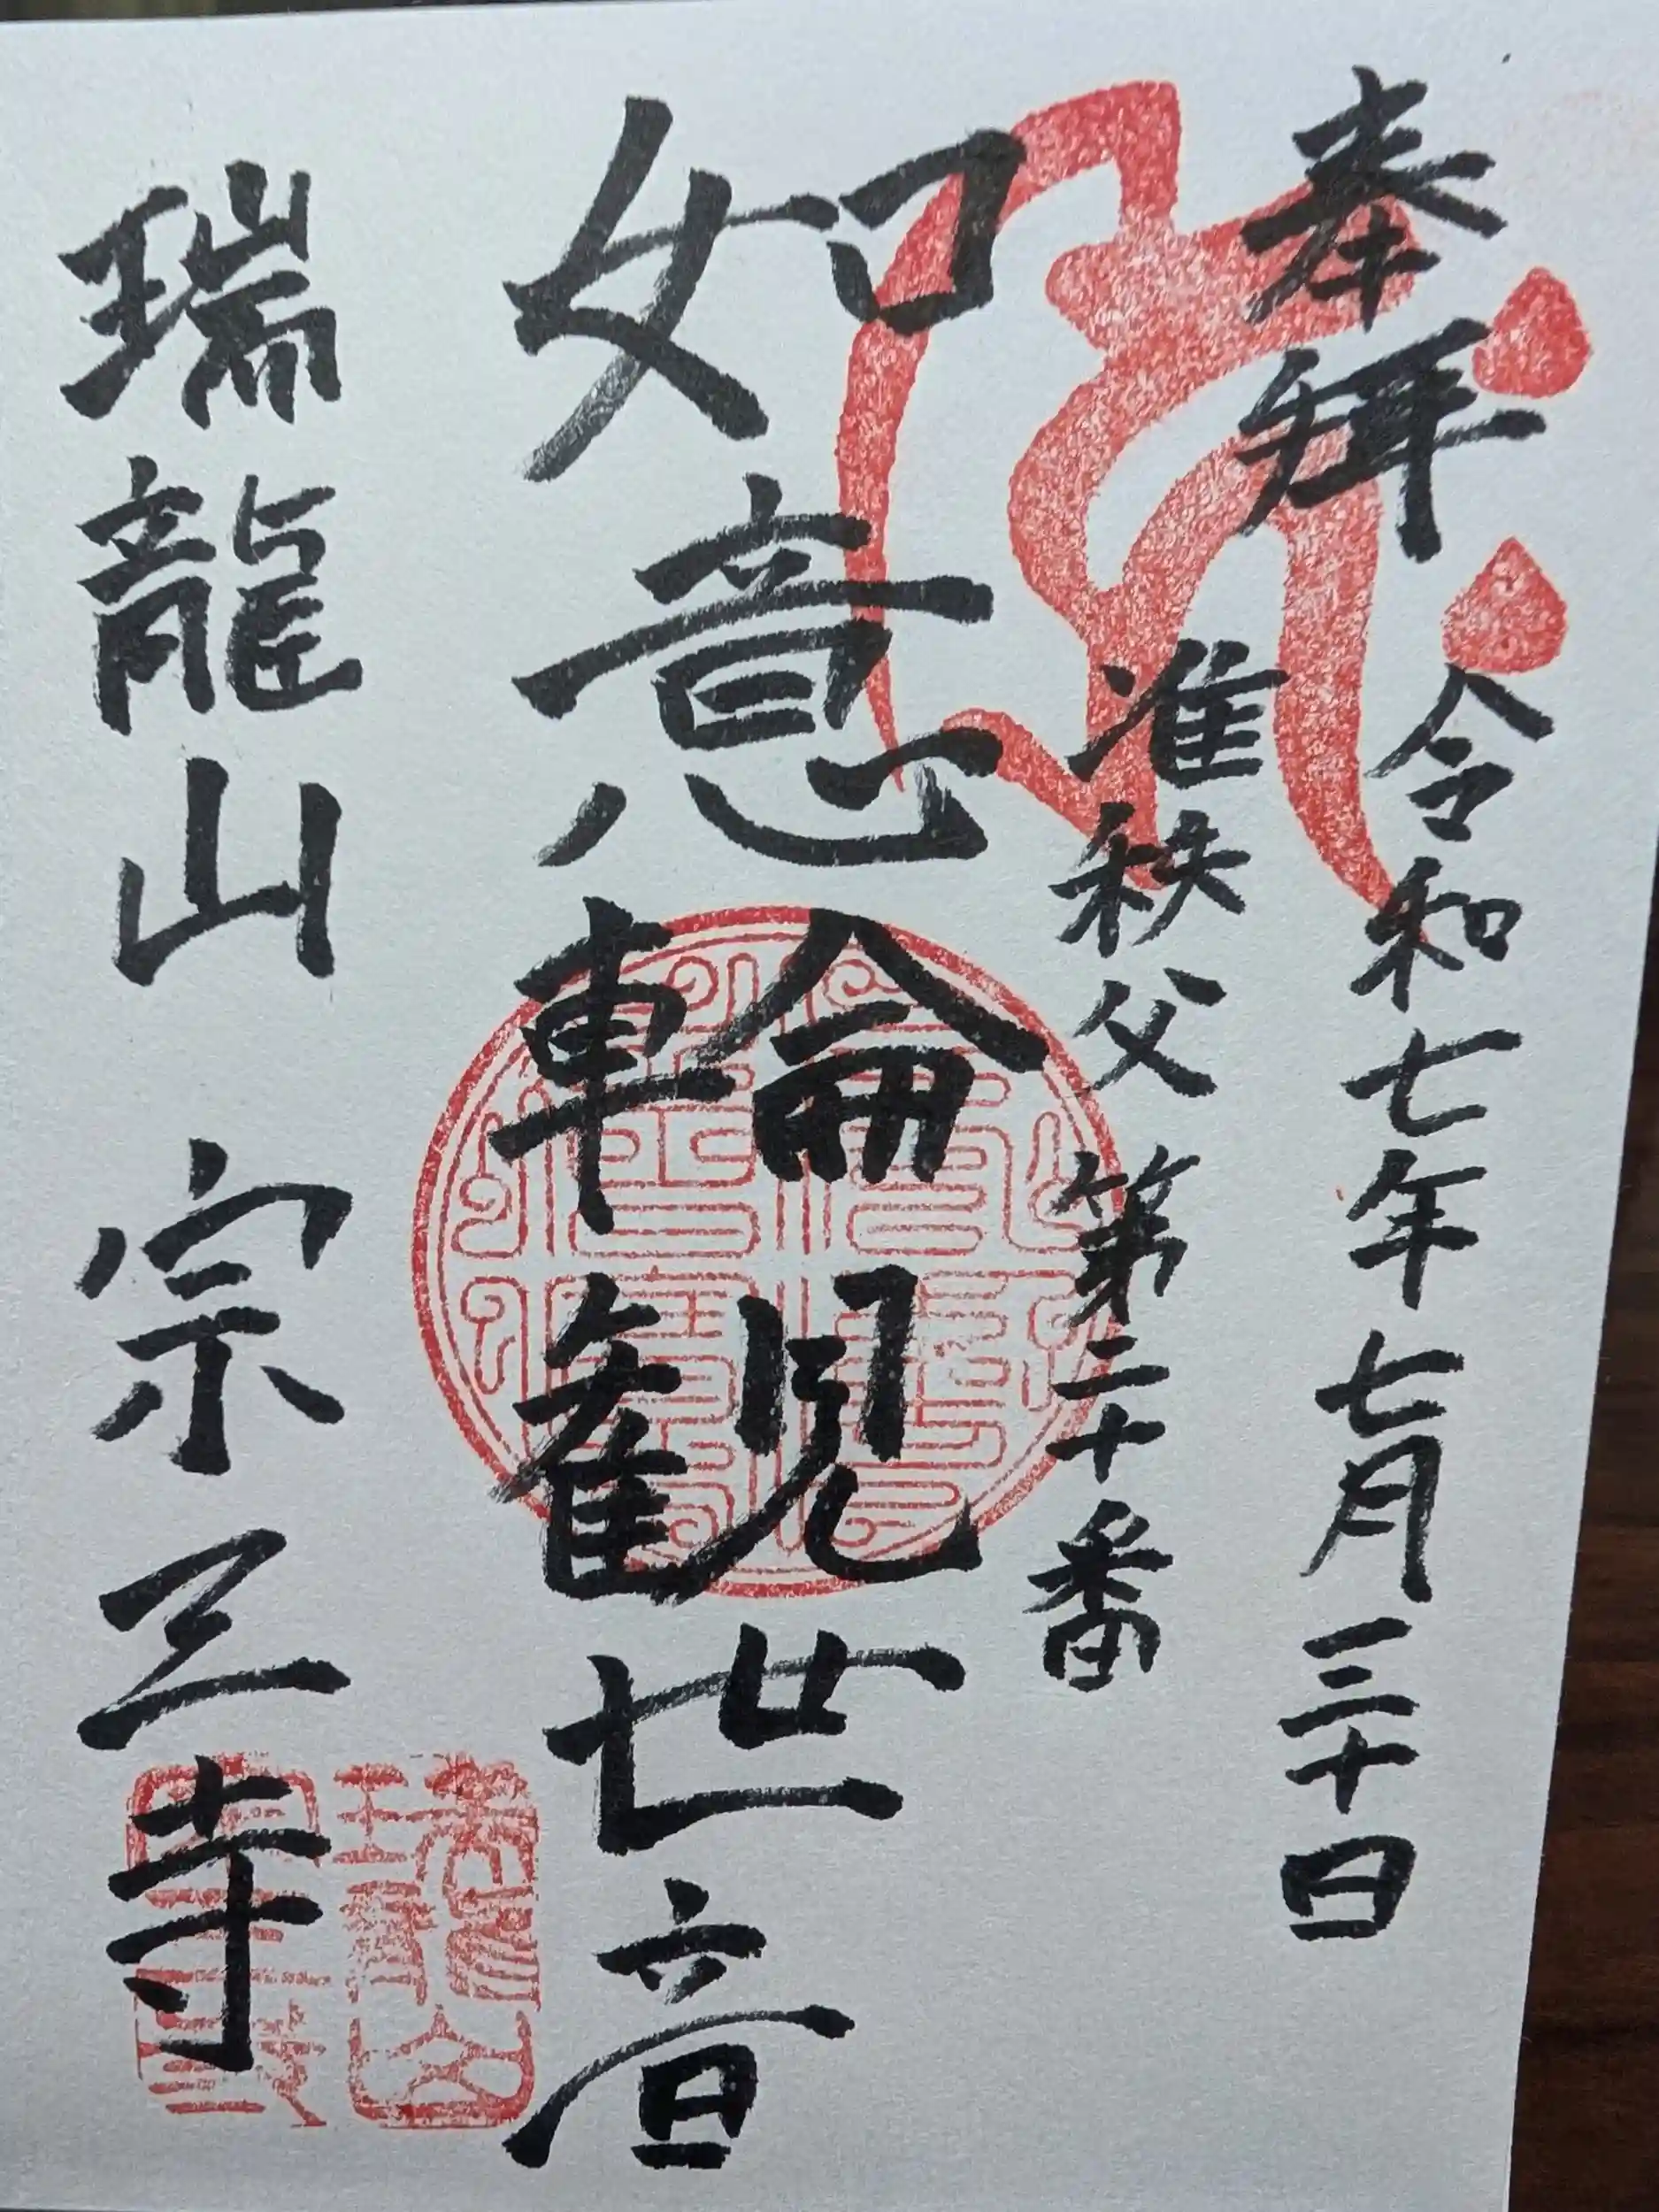 奉拝 令和七年七月三十日
准秩父 第二十番
如意輪観世音
瑞龍山 宗三寺